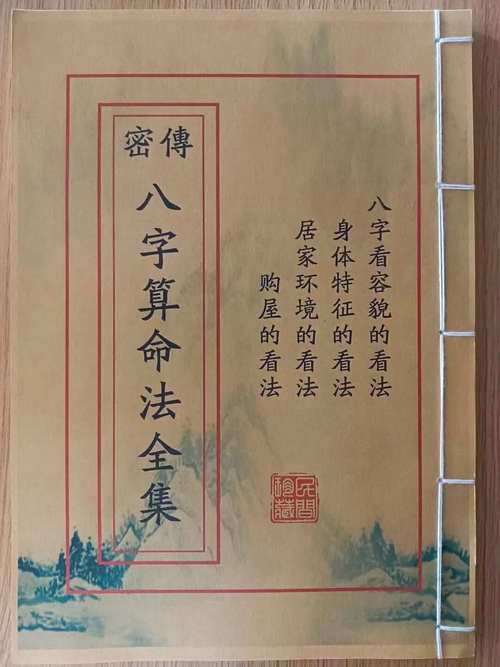 密傳
八字算命法全集
八字看容貌的看法
身体特征的看法
居家环境的看法
购屋的看法
民間
珍藏